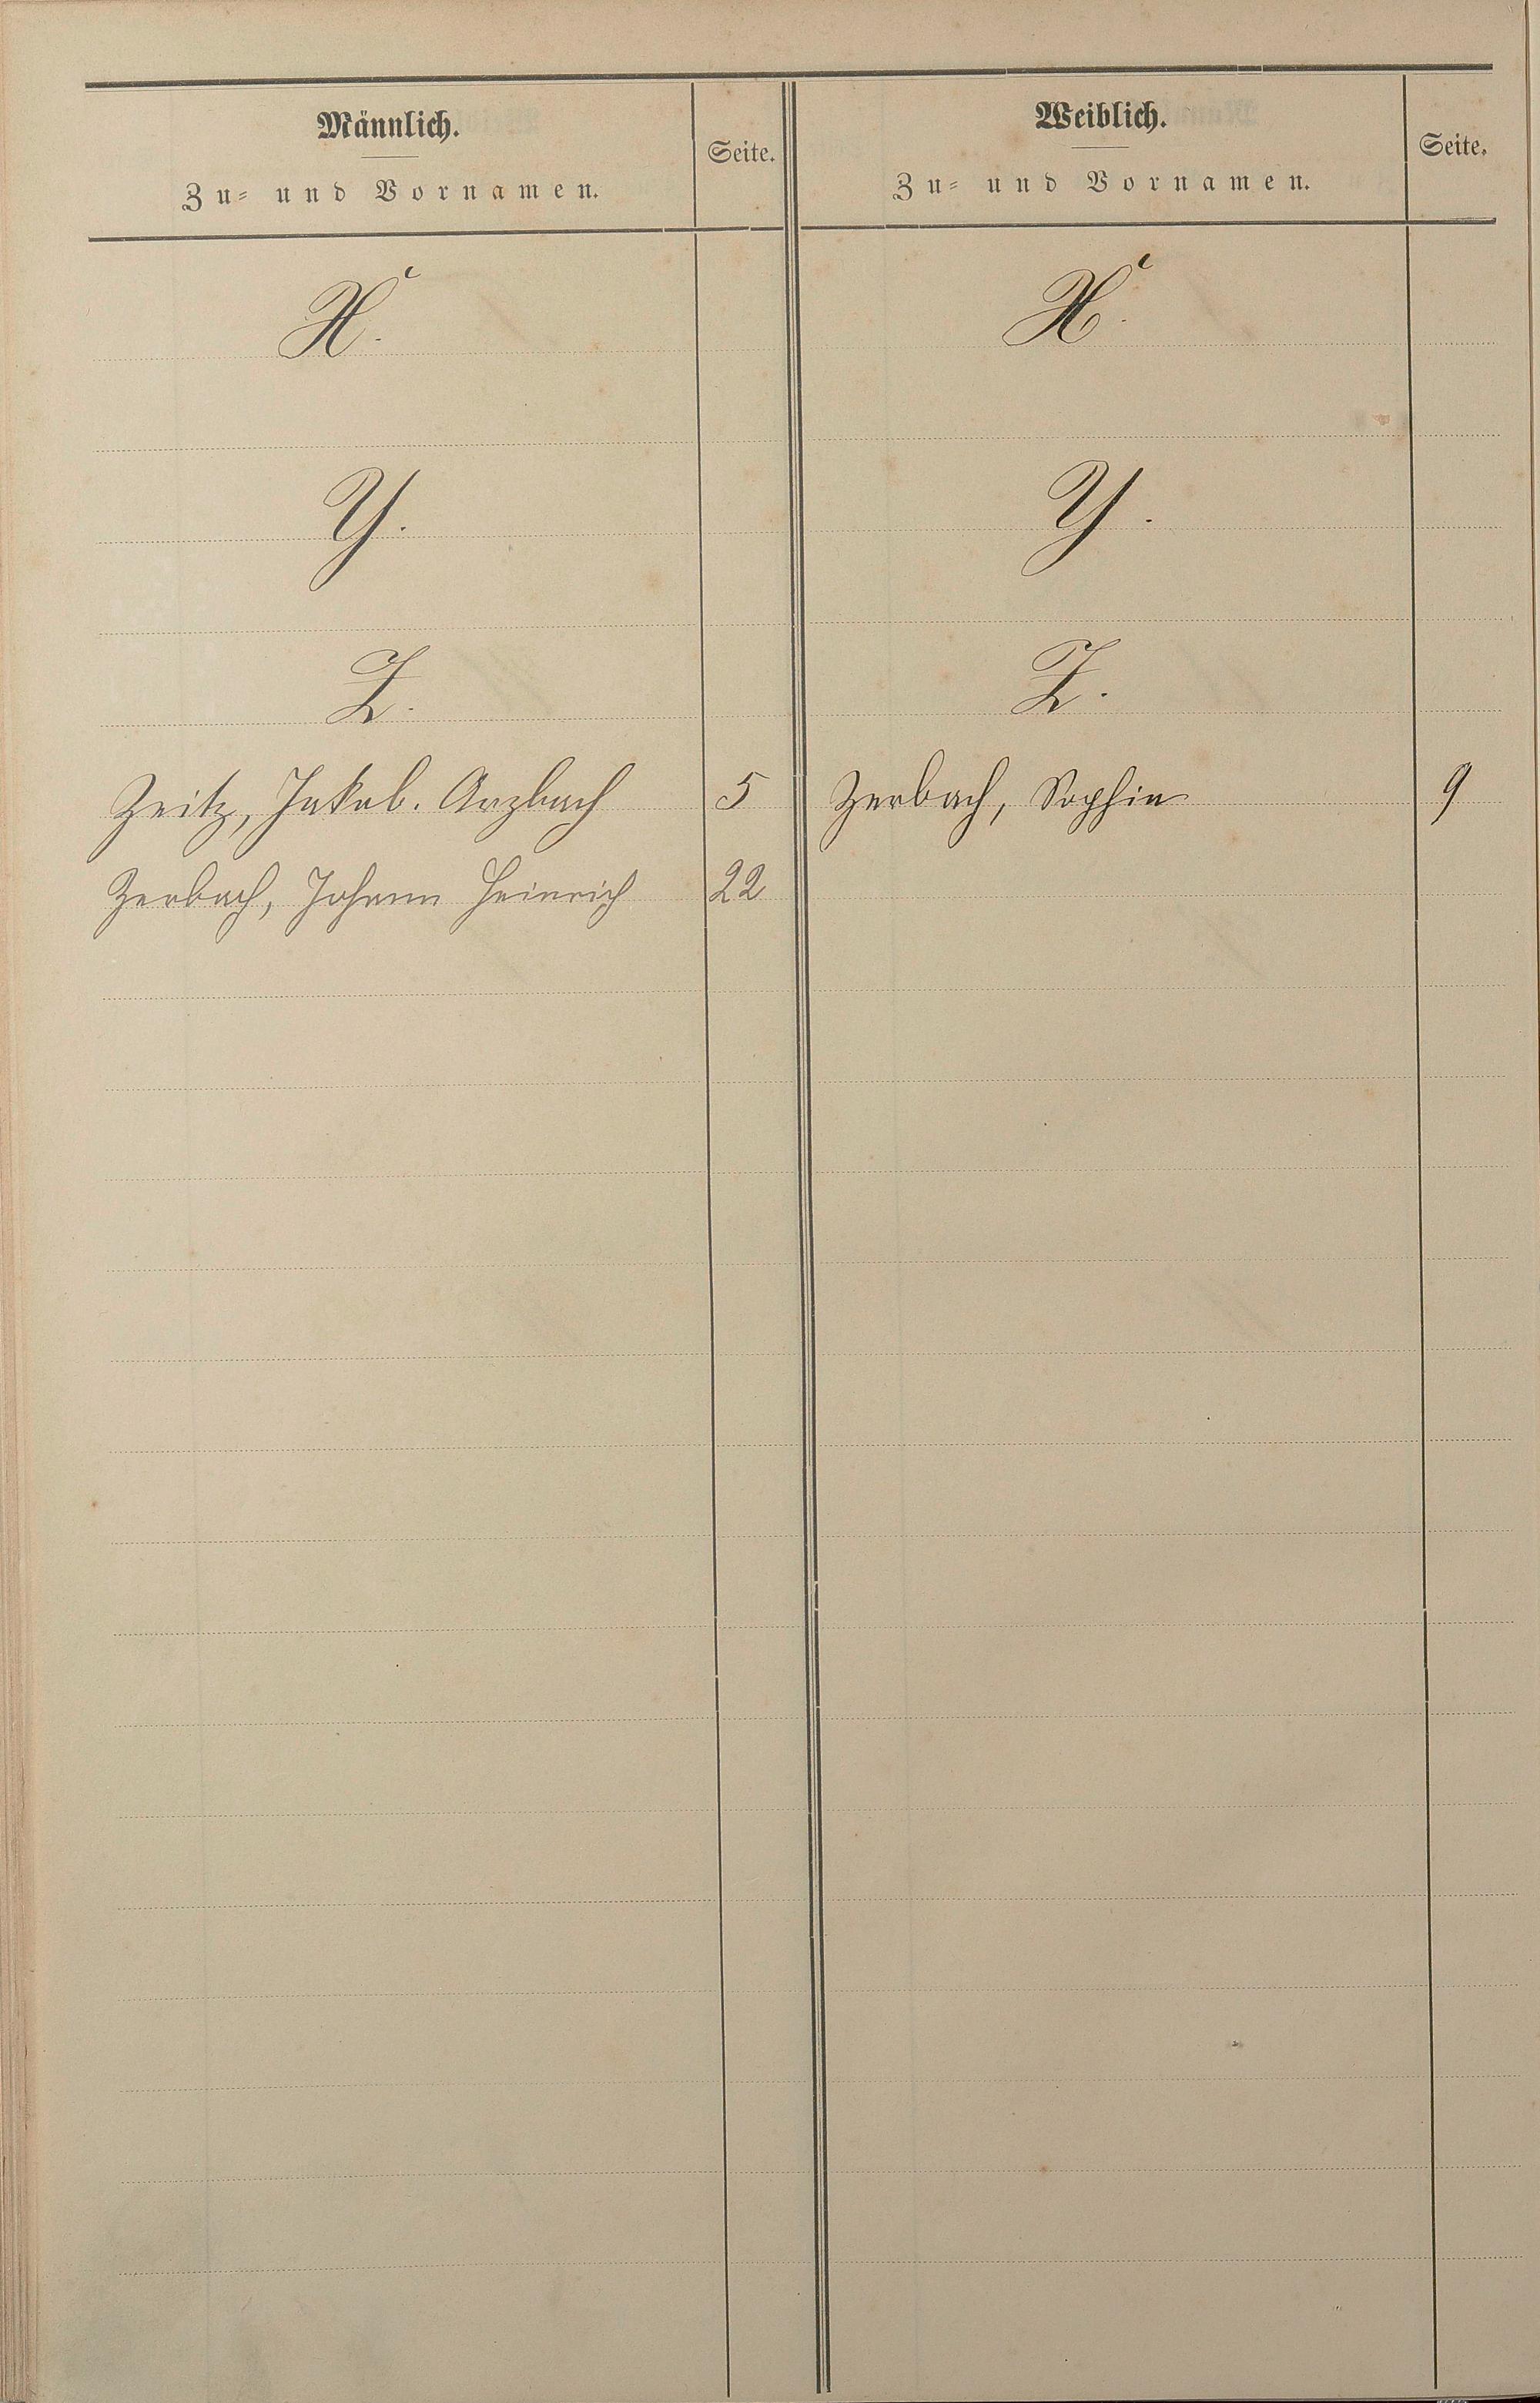 Männlich.
Zu- und Vornamen.
Seite.
Weiblich.
Zu- und Vornamen.
Seite.
X.
X.
Y.
Y.
Z.
Z.
Zeitz, Jakob. Arzbach 5
Zerbach, Sophie 9
Zerbach, Johann Heinrich 22